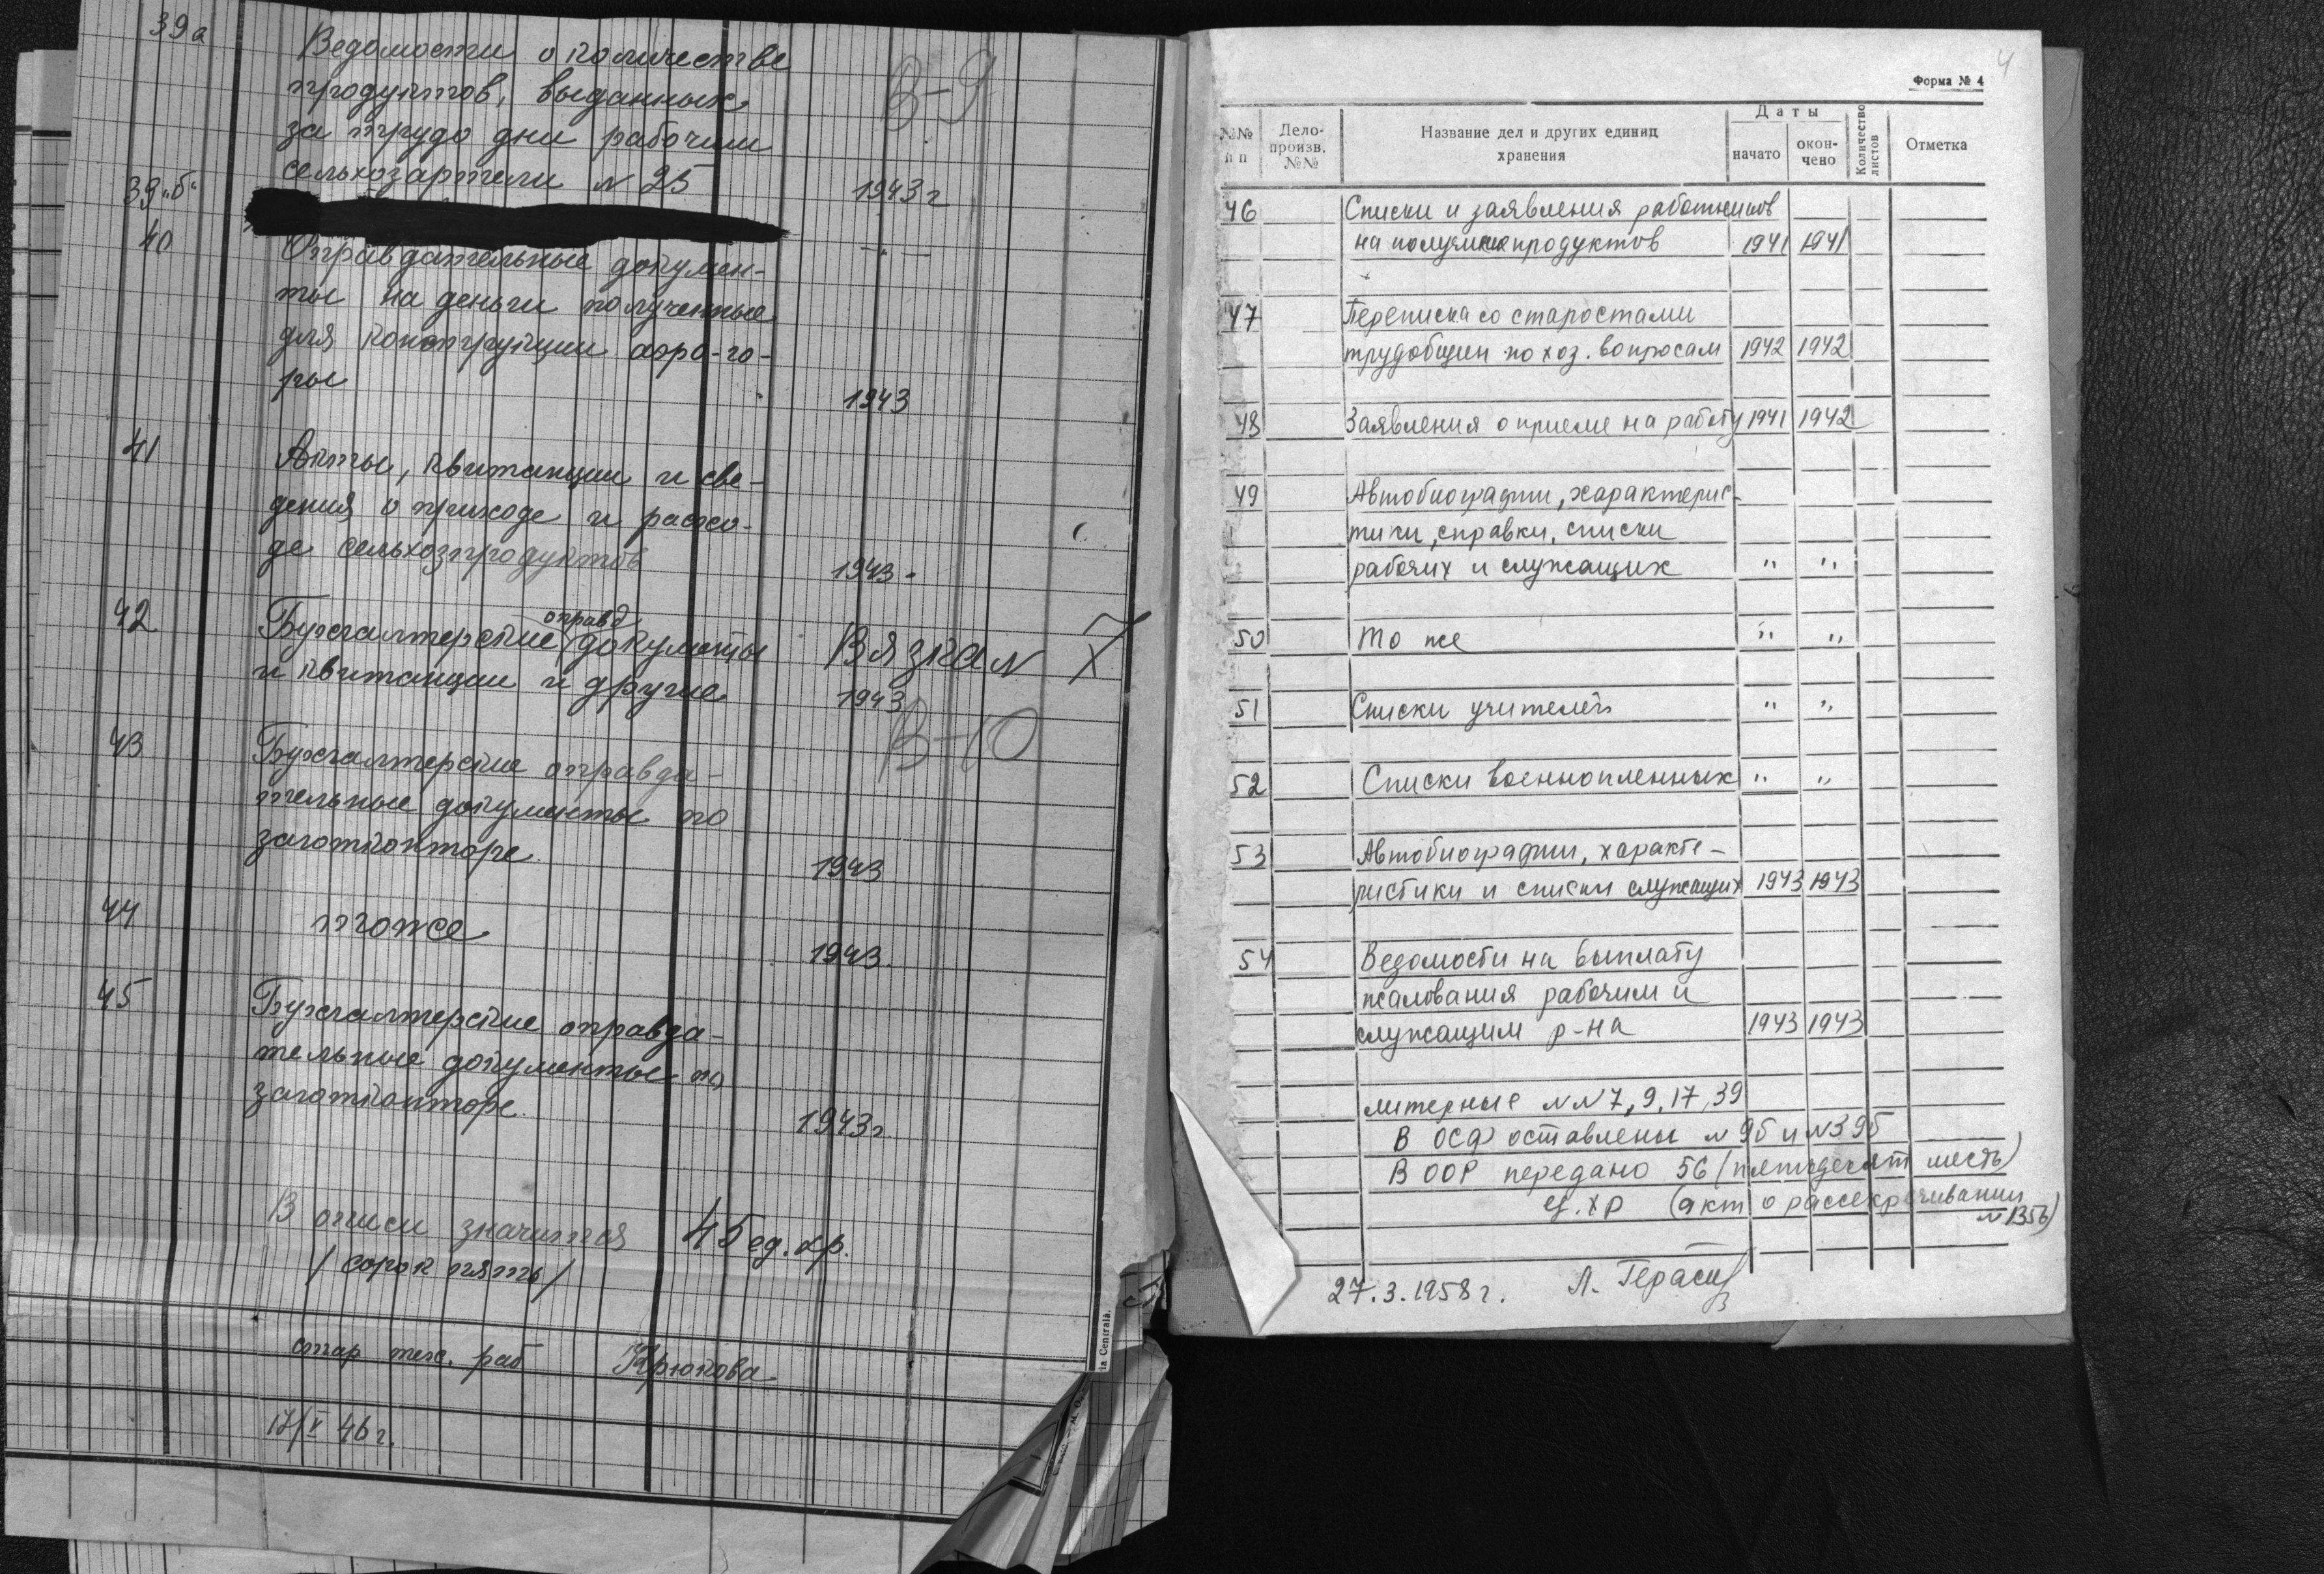 39а
Ведомости о количестве
продуктов, выданных
за трудо дни рабочим
сельхозартели N 25
1943 г
В-9
39 „б“
40
Оправдательные докумен-
ты на деньги полученные
для конструкции
1943
41
Акты, квитанции и све-
дения о приходе и расхо-
де сельхозпродуктов
1943 -
42
оправд
Бухгалтерские документы
и квитанции и другие
Вязка N X
1943
В-10
43
Бухгалтерские оправда-
тельные документы по
заготконторе.
1943
44
тоже
1943.
45
Бухгалтерские оправда-
тельные документы по
заготконторе.
1943г.
В описи значится 45 ед. хр.
/ сорок пять /
стар тех. раб Крюкова
17/V 46 г.
ia Centrală.
4
Форма № 4
№№ п п
Дело-произв. №№
Название дел и других единиц хранения
Даты
начато
окон-чено
Количество листов
Отметка
46 Списки и заявления работников
на получение продуктов 1941 1941
47 Переписка со старостами
трудобщин по хоз. вопросам 1942 1942
48 Заявления о приеме на работу 1941 1942
49 Автобиографии, характерис-
тики, справки, списки
рабочих и служащих " "
50 То же " "
51 Списки учителей " "
52 Списки военнопленных " "
53 Автобиографии, характе-
ристики и списки служащих 1943 1943
54 Ведомости на выплату
жалования рабочим и
служащим р-на 1943 1943
литерные NN 7, 9, 17, 39
В ОСФ оставлены N 9б и N 39б
В ООР передано 56 (пятьдесят шесть)
ед. хр (акт о рассекречивании
N 1356)
27.3.1958 г. Л. Герасим